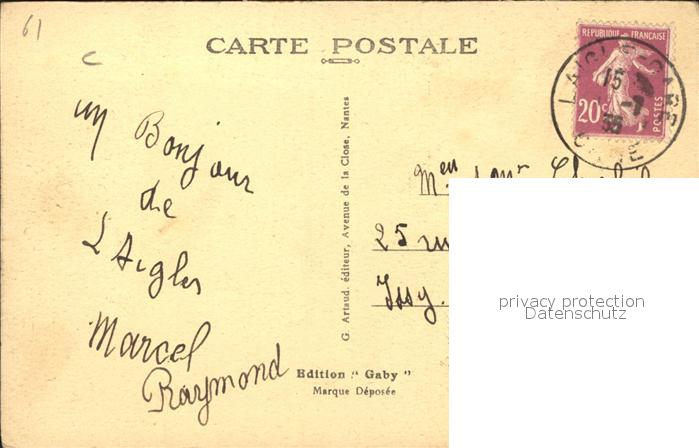 61
c
CARTE POSTALE
REPUBLIQUE FRANÇAISE
20c
POSTES
15
un Bonjour
de
L'Aigles
Marcel
Raymond
G. Artaud, éditeur, Avenue de la Close, Nantes
Edition "Gaby"
Marque Déposée
25
Issy.
privacy protection
Datenschutz